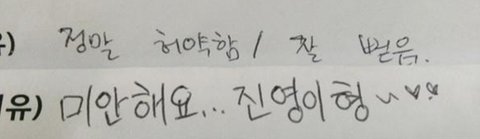 ) 정말 허약함 / 잘 받음.
유) 미안해요... 진영이형 ~ ♥♥